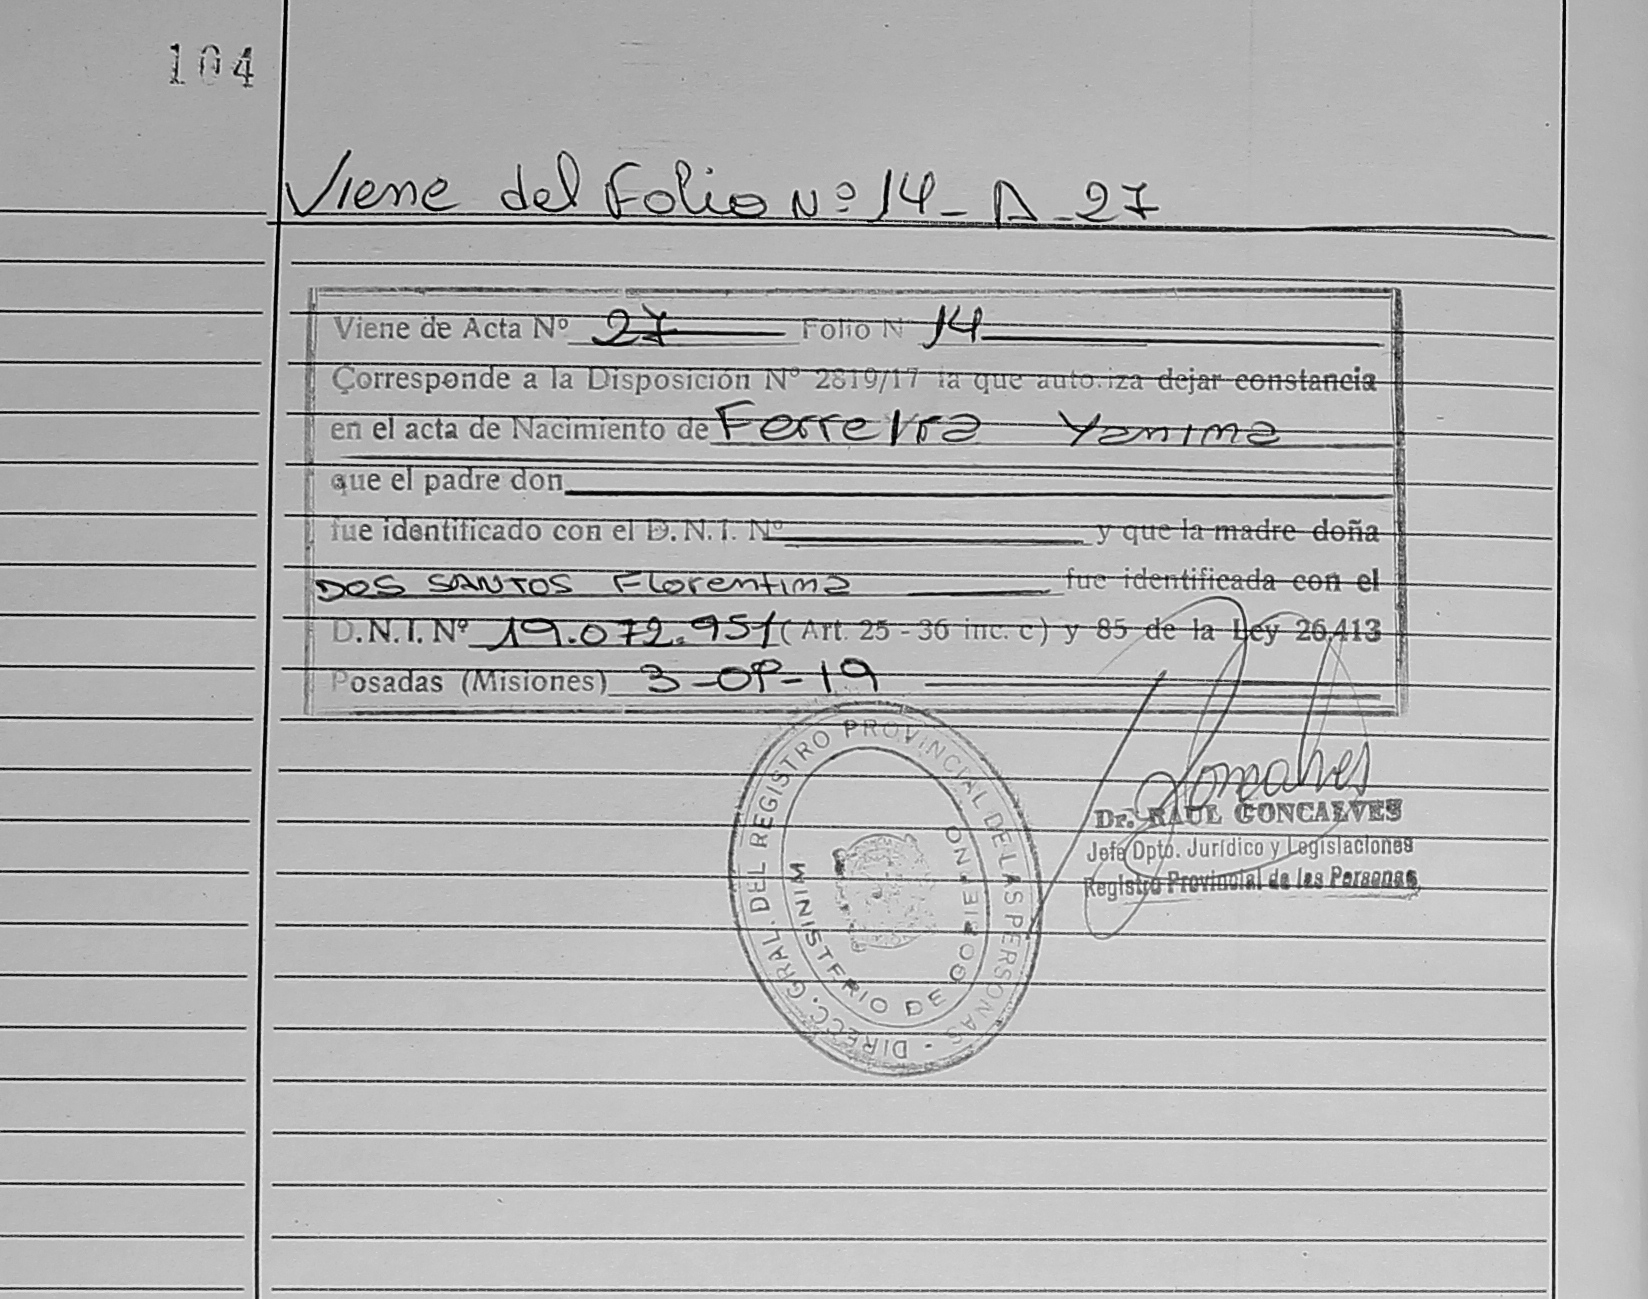 104
Viene del Folio Nº 14 - A - 27
Viene de Acta Nº 27 Folio N 14
Corresponde a la Disposición Nº 2819/17 la que autoriza dejar constancia
en el acta de Nacimiento de Ferreira Yanina
que el padre don
fue identificado con el D. N. I. Nº y que la madre doña
DOS SANTOS Florentina fue identificada con el
D.N.I. Nº 19.072.951 (Art. 25 - 36 inc. c) y 85 de la Ley 26.413
Posadas (Misiones) 3-09-19
DIRECC. GRAL. DEL REGISTRO PROVINCIAL DE LAS PERSONAS
MINISTERIO DE GOBIERNO
Goncalves
Dr. RAUL GONCALVES
Jefe Dpto. Jurídico y Legislaciones
Registro Provincial de las Personas